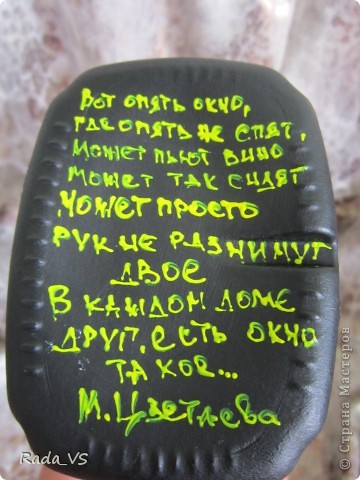 Вот опять окно,
где опять не спят,
может пьют вино
может так сидят
может просто
рук не разнимут
двое
В каждом доме
друг, есть окно
такое...
М. Цветаева
Rada_VS
© Страна Мастеров